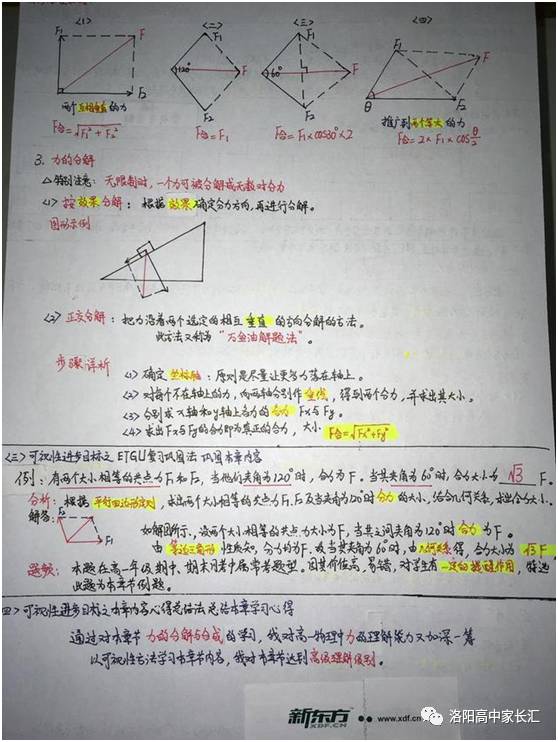 <1> <二> <三> <四>
F₁ F F₂
F₁ 120° F F₂
F₁ 60° F F₂
F₁ F θ F₂
两个互相垂直的力 推广到两个等大的力
F合=√F₁²+F₂² F合=F₁ F合=F₁×cos30°×2 F合=2×F₁×cosθ/2
3. 力的分解
△特别注意：无限制时，一个力可被分解成无数对分力
<1> 按效果分解：根据效果确定分力方向，再进行分解。
图形示例
<2> 正交分解：把力沿着两个选定的相互垂直的方向分解的方法。
此方法又称为“万金油解题法”。
步骤详析
<1> 确定坐标轴：原则是尽量让更多力落在轴上。
<2> 对每个不在轴上的力，向两轴分别作垂线，得到两个分力，并求出其大小。
<3> 分别求x轴和y轴上各力的合力Fx与Fy。
<4> 求出Fx与Fy的合力即为真正的合力，大小F合=√Fx²+Fy²
(三) 可视性进步目标之ETGU复习巩固法 巩固本章内容
例：有两个大小相等的共点力F₁和F₂，当他们夹角为120°时，合力为F。当其夹角为60°时，合力大小为 √3 F。
分析：根据平行四边形定则，求出两个大小相等的共点力F₁、F₂及当夹角为120°时合力的大小，结合几何关系，求出合力大小。
解答：
F₂ F F₁
如解图所示，设两个大小相等的共点力大小为F，当其之间夹角为120°时合力为F。
由等边三角形性质知，分力的为F，故当其夹角为60°时，由几何关系得，合力大小为√3F
题频：本题在高一年级期中、期末月考中属常考题型。因其价值高，易错，对学生有一定的提醒作用，特选
此题为本章节例题。
四> 可视性进步目标之本章内容心得总结法 总结本章学习心得
通过对本章节力的分解与合成的学习，我对高一物理中力的理解能力又加深一筹
以可视性方法学习本章节内容，我对本章节达到高级理解级别。
新东方 www.xdf.cn
洛阳高中家长汇